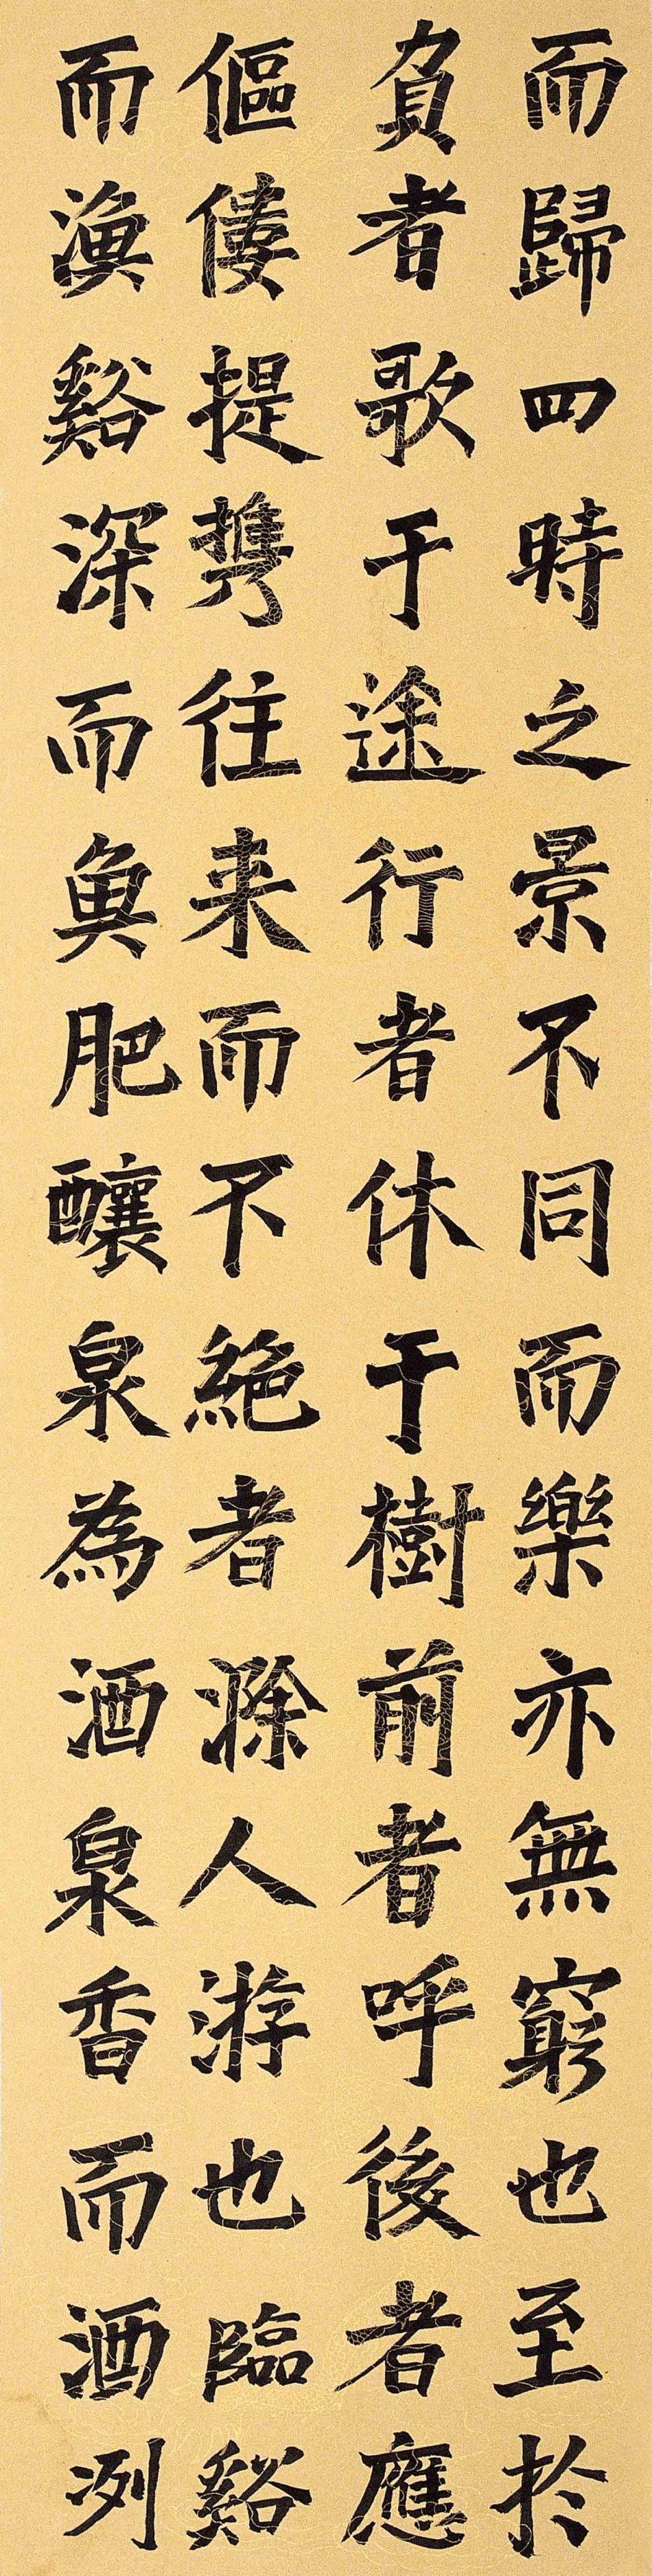 而歸四時之景不同而樂亦無窮也至於
負者歌于途行者休于樹前者呼後者應
傴僂提攜往来而不絶者滁人游也臨谿
而漁谿深而魚肥釀泉為酒泉香而酒洌